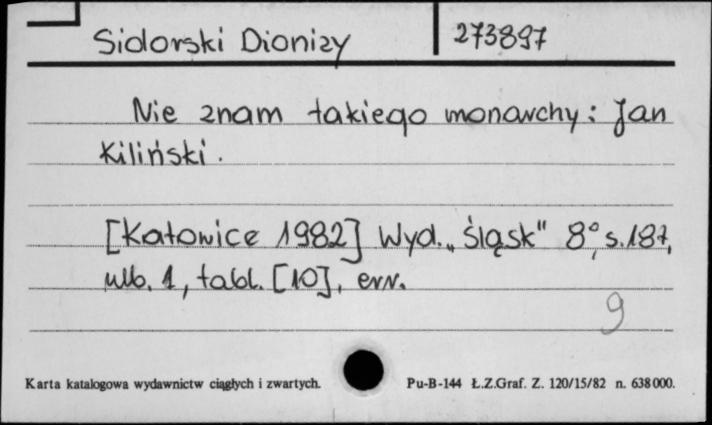 Sidorski Dionizy 273897
Nie znam takiego monarchy: Jan
Kiliński.
[Katowice 1982] Wyd. „Śląsk" 8°, s. 187,
nlb. 1, tabl. [10], err.
9
Karta katalogowa wydawnictw ciągłych i zwartych. Pu-B-144 Ł.Z.Graf. Z. 120/15/82 n. 638000.